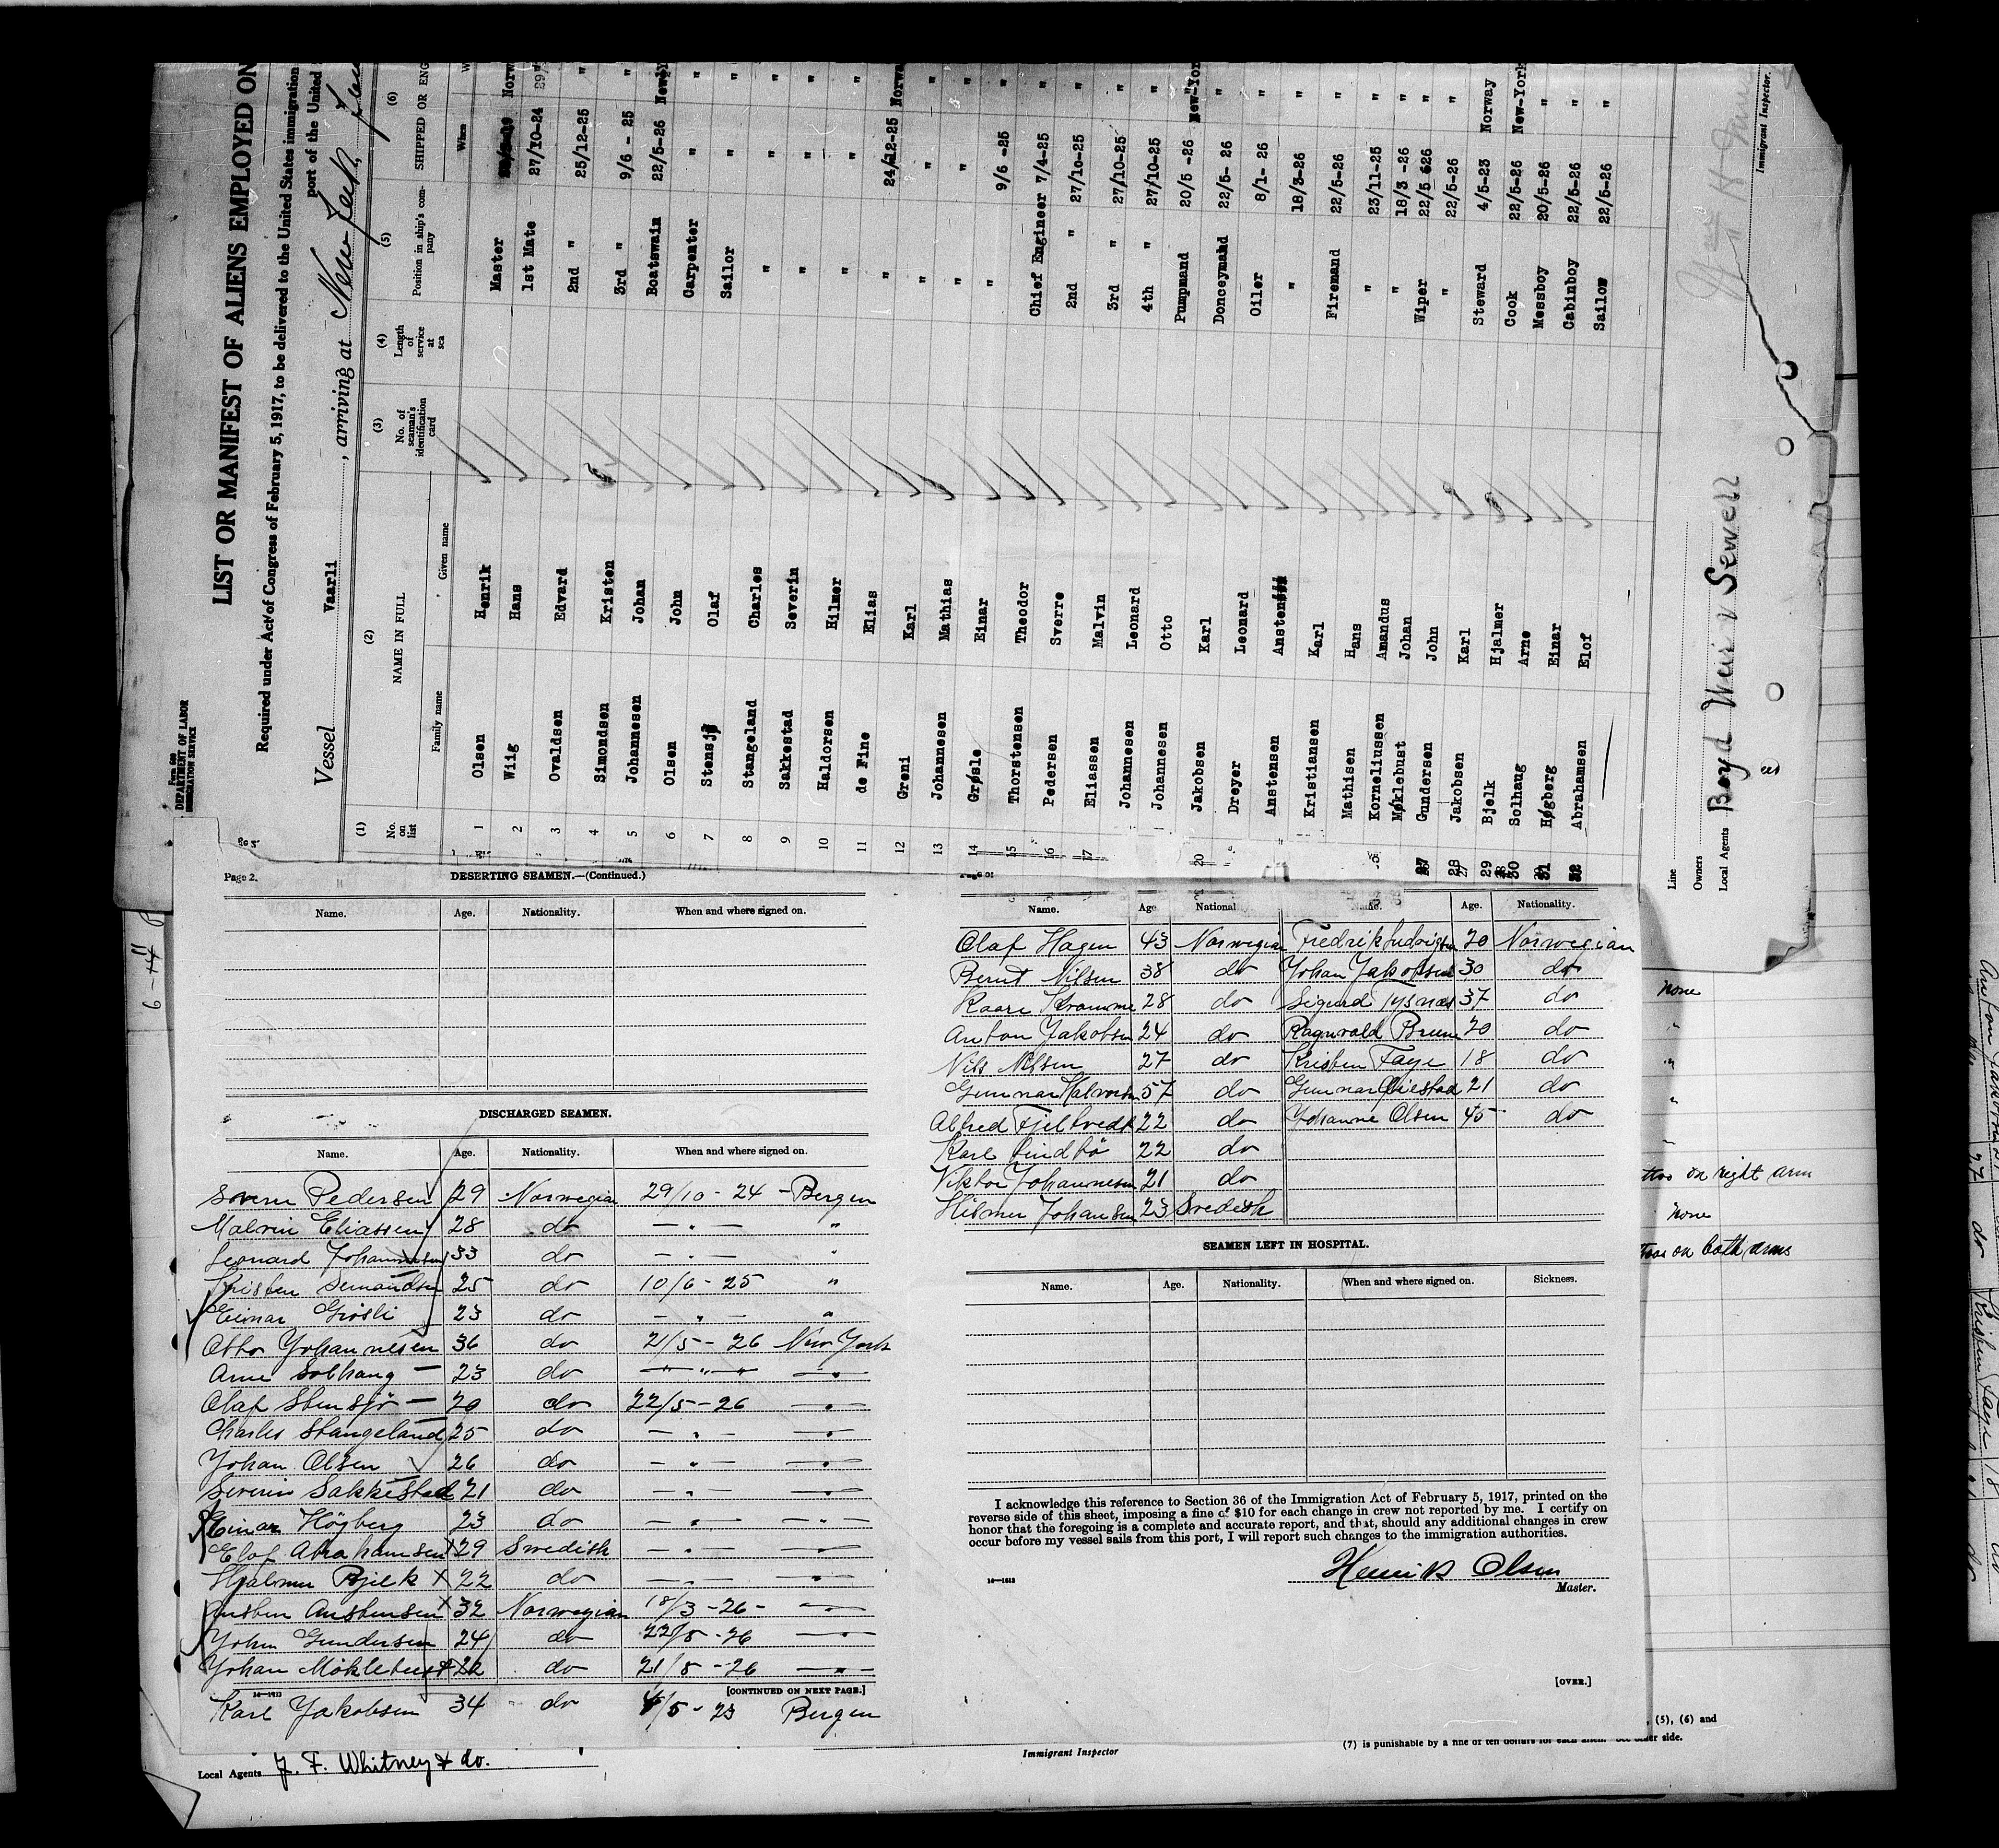 Form 680
DEPARTMENT OF LABOR
IMMIGRATION SERVICE
LIST OR MANIFEST OF ALIENS EMPLOYED ON
Required under Act of Congress of February 5, 1917, to be delivered to the United States immigration
port of the United
Vessel Vaarli, arriving at New York
(1) (2) (3) (4) (5) (6)
No. on list NAME IN FULL No. of seaman's identification card Length of service at sea Position in ship's company SHIPPED OR ENG
Family name Given name When
1 Olsen Henrik Master Norw
2 Wiig Hans 1st Mate 27/10-24
3 Ovaldsen Edvard 2nd " 25/12-25 "
4 Simondsen Kristen 3rd " 9/6 - 25 "
5 Johannesen Johan Boatswain 22/5-26 NewY
6 Olsen John Carpenter " "
7 Stensjø Olaf Sailor " "
8 Stangeland Charles " " "
9 Sakkestad Severin " " "
10 Haldorsen Hilmer " " "
11 de Fine Elias " 24/12-25 Norwa
12 Greni Karl " " "
13 Johannesen Mathias " " "
14 Grøsle Einar " 9/6 -25 "
15 Thorstensen Theodor Chief Engineer 7/4-25 "
16 Pedersen Sverre 2nd " 27/10-25 "
17 Eliassen Malvin 3rd " 27/10-25 "
Johannesen Leonard 4th " 27/10-25 "
Johannesen Otto Pumpmand 20/5 -26 New-Yor
20 Jakobsen Karl Donceymand 22/5- 26 "
Dreyer Leonard Oiler 8/1- 26 "
Anstensen Ansten " 18/3-26 "
Kristiansen Karl Firemand 22/5-26 "
Mathisen Hans " 23/11-25 "
Korneliussen Amandus " 18/3 -26 "
Møklebust Johan Wiper 22/5 626 "
27 Gundersen John " 22/5-26 "
28 Jakobsen Karl Steward 4/5-23 Norway
29 Bjelk Hjalmer Cook 22/5-26 New-York
30 Solhaug Arne Messboy 20/5-26 "
31 Høgberg Einar Cabinboy 22/5-26 "
32 Abrahamsen Elof Sailor 22/5-26 "
Line
Owners
Local Agents Boyd Weir & Sewell
Immigrant Inspector.
Page 2.
DESERTING SEAMEN.—(Continued.)
Name. Age. Nationality. When and where signed on.
DISCHARGED SEAMEN.
Name. Age. Nationality. When and where signed on.
Sverre Pedersen 29 Norwegian 29/10 - 24 - Bergen
Malvin Eliassen 28 do — " — "
Leonard Johannesen 33 do — " — "
Kristen Semandsen 25 do 10/6 - 25 "
Einar Grösli 23 do — " — "
Otto Johannesen 36 do 21/5 - 26 New York
Arne Solhaug 23 do — " — " — " —
Olaf Stensjö 20 do 22/5 - 26 — " —
Charles Stangeland 25 do — " — — " —
Johan Olsen 26 do — " — — " —
Severin Sakkestad 21 do — " — — " —
Einar Högberg 23 do — " — — " —
Elof Abrahamsen 29 Swedish — " — — " —
Hjalmer Bjelk 22 do — " — — " —
Ansten Anstensen 32 Norwegian 18/3 - 26 - — " —
John Gundersen 24 do 22/5 - 26 — " —
Johan Möklebust 22 do 21/5 - 26 — " —
[CONTINUED ON NEXT PAGE.]
Karl Jakobsen 34 do 4/5 - 23 Bergen
Name. Age Nationality Name. Age. Nationality.
Olaf Hagen 43 Norwegian Fredrik Ludvigsen 20 Norwegian
Bernt Nilsen 38 do Johan Jakobsen 30 do
Kaare Kromme 28 do Sigurd Tysnes 37 do
Anton Jakobsen 24 do Ragnvald Bruun 20 do
Nils Nilsen 27 do Kristen Faye 18 do
Gunnar Halvorsen 57 do Gunnar Qviestad 21 do
Alfred Fjeltvedt 22 do Johanne Olsen 45 do
Karl Lindbö 22 do
Viktor Johannesen 21 do
Hilmer Johansen 23 Swedish
SEAMEN LEFT IN HOSPITAL.
Name. Age. Nationality. When and where signed on. Sickness.
I acknowledge this reference to Section 36 of the Immigration Act of February 5, 1917, printed on the
reverse side of this sheet, imposing a fine of $10 for each change in crew not reported by me. I certify on
honor that the foregoing is a complete and accurate report, and that, should any additional changes in crew
occur before my vessel sails from this port, I will report such changes to the immigration authorities.
14—1613
Henrik Olsen
Master.
[OVER.]
none
on right arm
none
on both arms
, (5), (6) and
(7) is punishable by a fine of ten dollars for each alien. See other side.
Immigrant Inspector
Local Agents J. F. Whitney & Co.